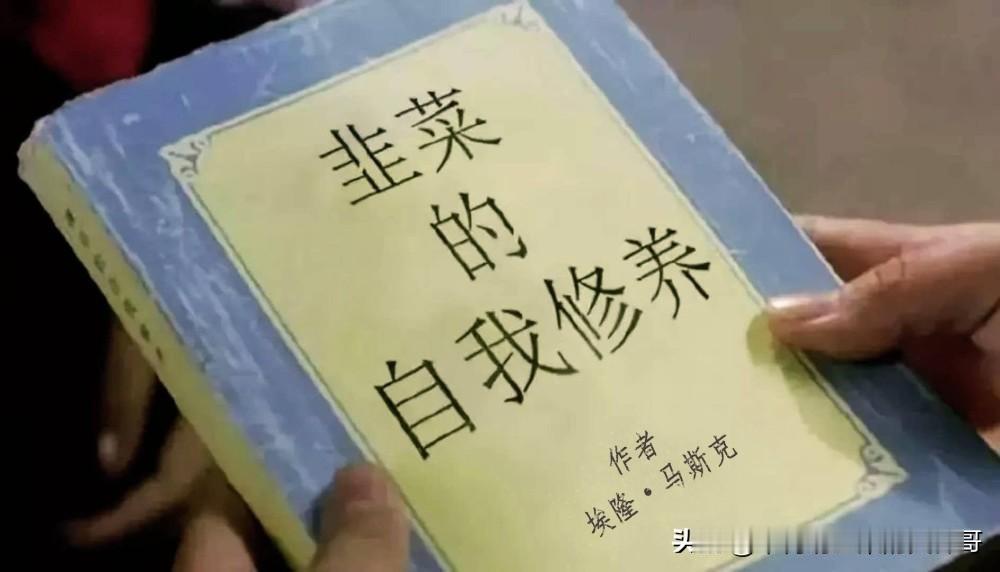 韭菜
的
自我修养
作者
埃隆·马斯克
头
哥